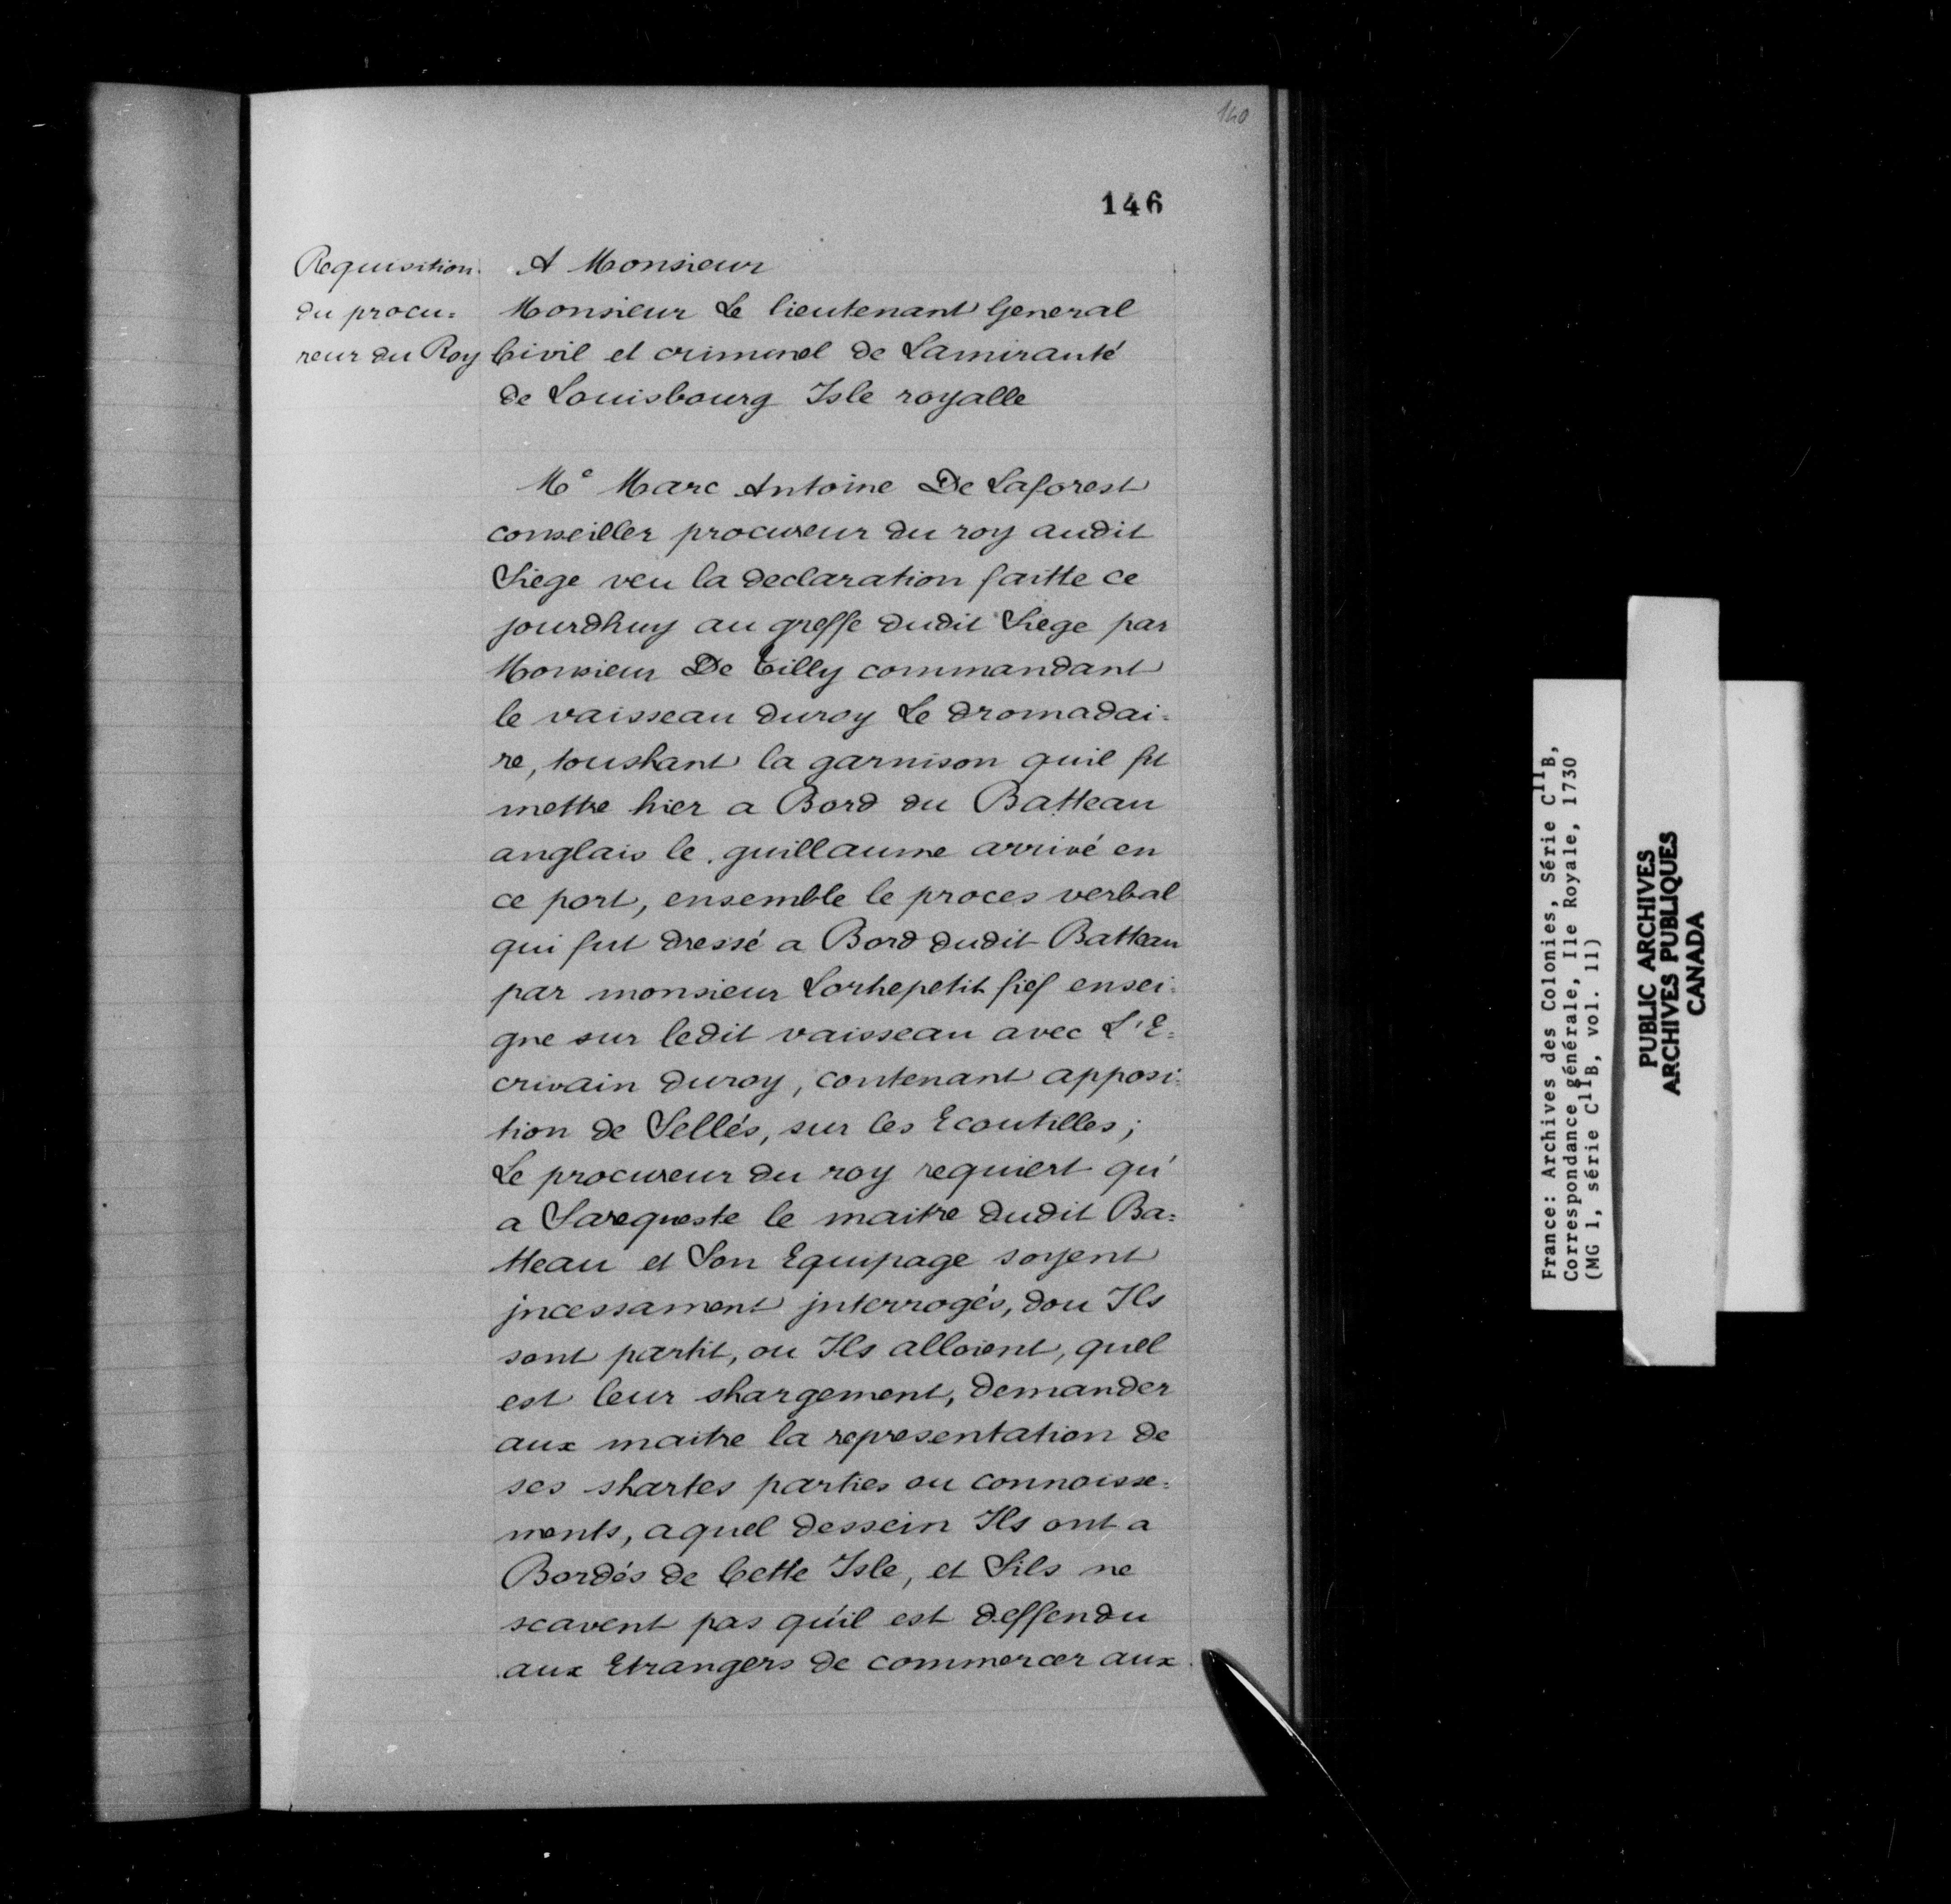 140
146
Requisition
du procu=
reur du Roy
A Monsieur
Monsieur Le lieutenant General
Civil et criminel de Lamirauté
de Louisbourg Isle royalle
Me Marc Antoine De Laforest
conseiller procureur du roy audit
Siege veu la declaration faitte ce
jourdhuy au greffe dudit Siege par
Monsieur De Tilly commandant
le vaisseau duroy Le dromadai=
re, toushant la garnison quil fit
mettre hier a Bord du Batteau
anglais le guillaume arrivé en
ce port, ensemble le proces verbal
qui fut dressé a Bord dudit Batteau
par monsieur Lorhepetit fief ensei=
gne sur ledit vaisseau avec L'E=
crivain duroy, contenant apposi=
tion de Sellés, sur les Ecoutilles;
Le procureur du roy requiert qu'
a Sarequeste le maitre dudit Ba=
tteau et Son Equipage soyent
jncessament jnterrogés, dou Ils
sont partit, ou Ils alloient, quel
est leur shargement, demander
aux maitre la representation de
ses shartes parties ou connoisse=
ments, aquel dessein Ils ont a
Bordés de Cette Isle, et Sils ne
scavent pas qu'il est deffendu
aux Etrangers de commercer aux
France: Archives des Colonies, Série C11B,
Correspondance générale, Ile Royale, 1730
(MG 1, série C11B, vol. 11)
PUBLIC ARCHIVES
ARCHIVES PUBLIQUES
CANADA